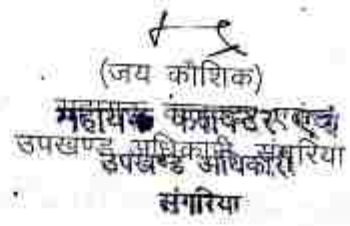 (जय कौशिक)
सहायक कलक्टर एवं
उपखण्ड अधिकारी संगरिया
उपखण्ड अधिकारी
संगरिया